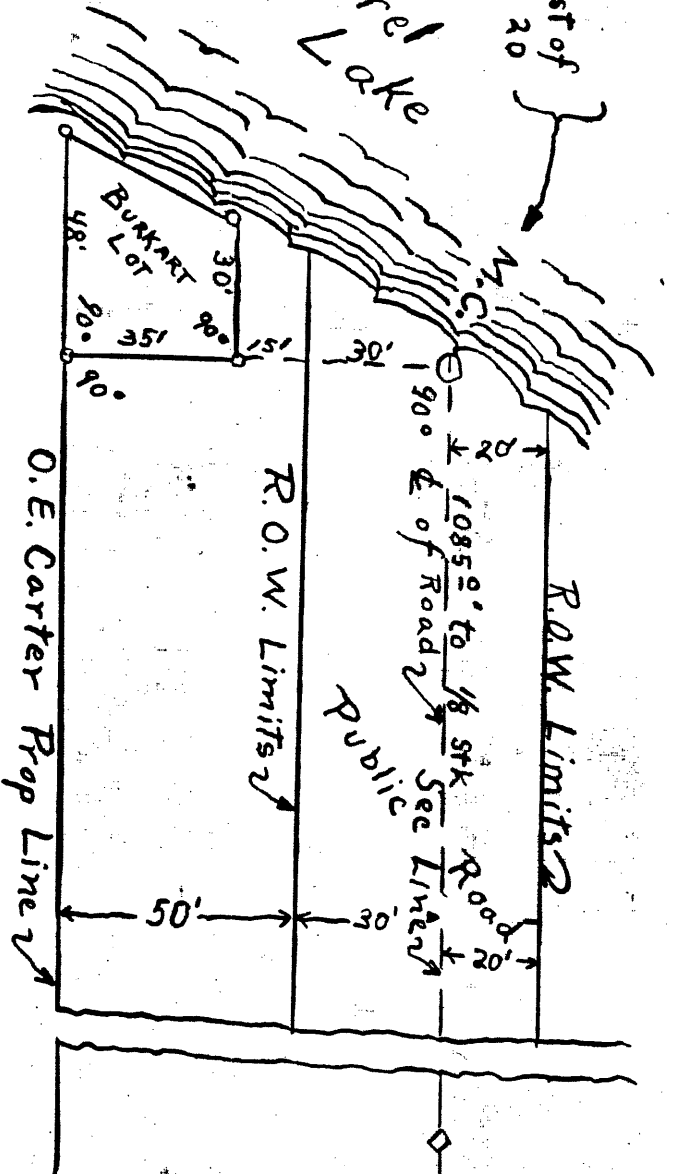 st of
20
rel
Lake
M.C.
BURKART
LOT
48'
30'
90°
90°
35'
15'
30'
90°
90°
20'
1085.0' to 1/8 Stk
℄ of Road
Public
Road
Sec Line
R.O.W. Limits
R.O.W. Limits
O.E. Carter Prop Line
50'
30'
20'